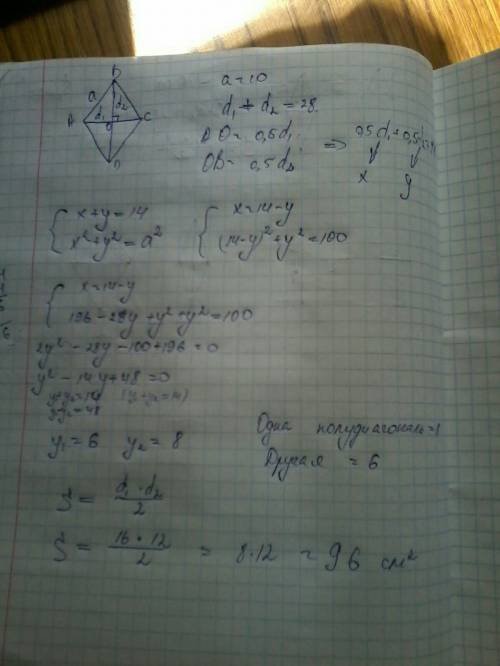 B
a
d₂
A
d₁
O
C
D
a = 10
d₁ + d₂ = 28.
AO = 0,5d₁
OB = 0,5d₂
=> 0,5d₁ + 0,5d₂
x y
{ x+y=14
x²+y²=a²
{ x=14-y
(14-y)²+y²=100
{ x=14-y
196-28y+y²+y²=100
2y²-28y-100+196=0
y²-14y+48=0
y₁+y₂=14 (y₁+y₂=14)
y₁·y₂=48
y₁=6 y₂=8
Одна полудиагональ =
Другая = 6
S = d₁·d₂ / 2
S = 16·12 / 2 = 8·12 = 96 см²